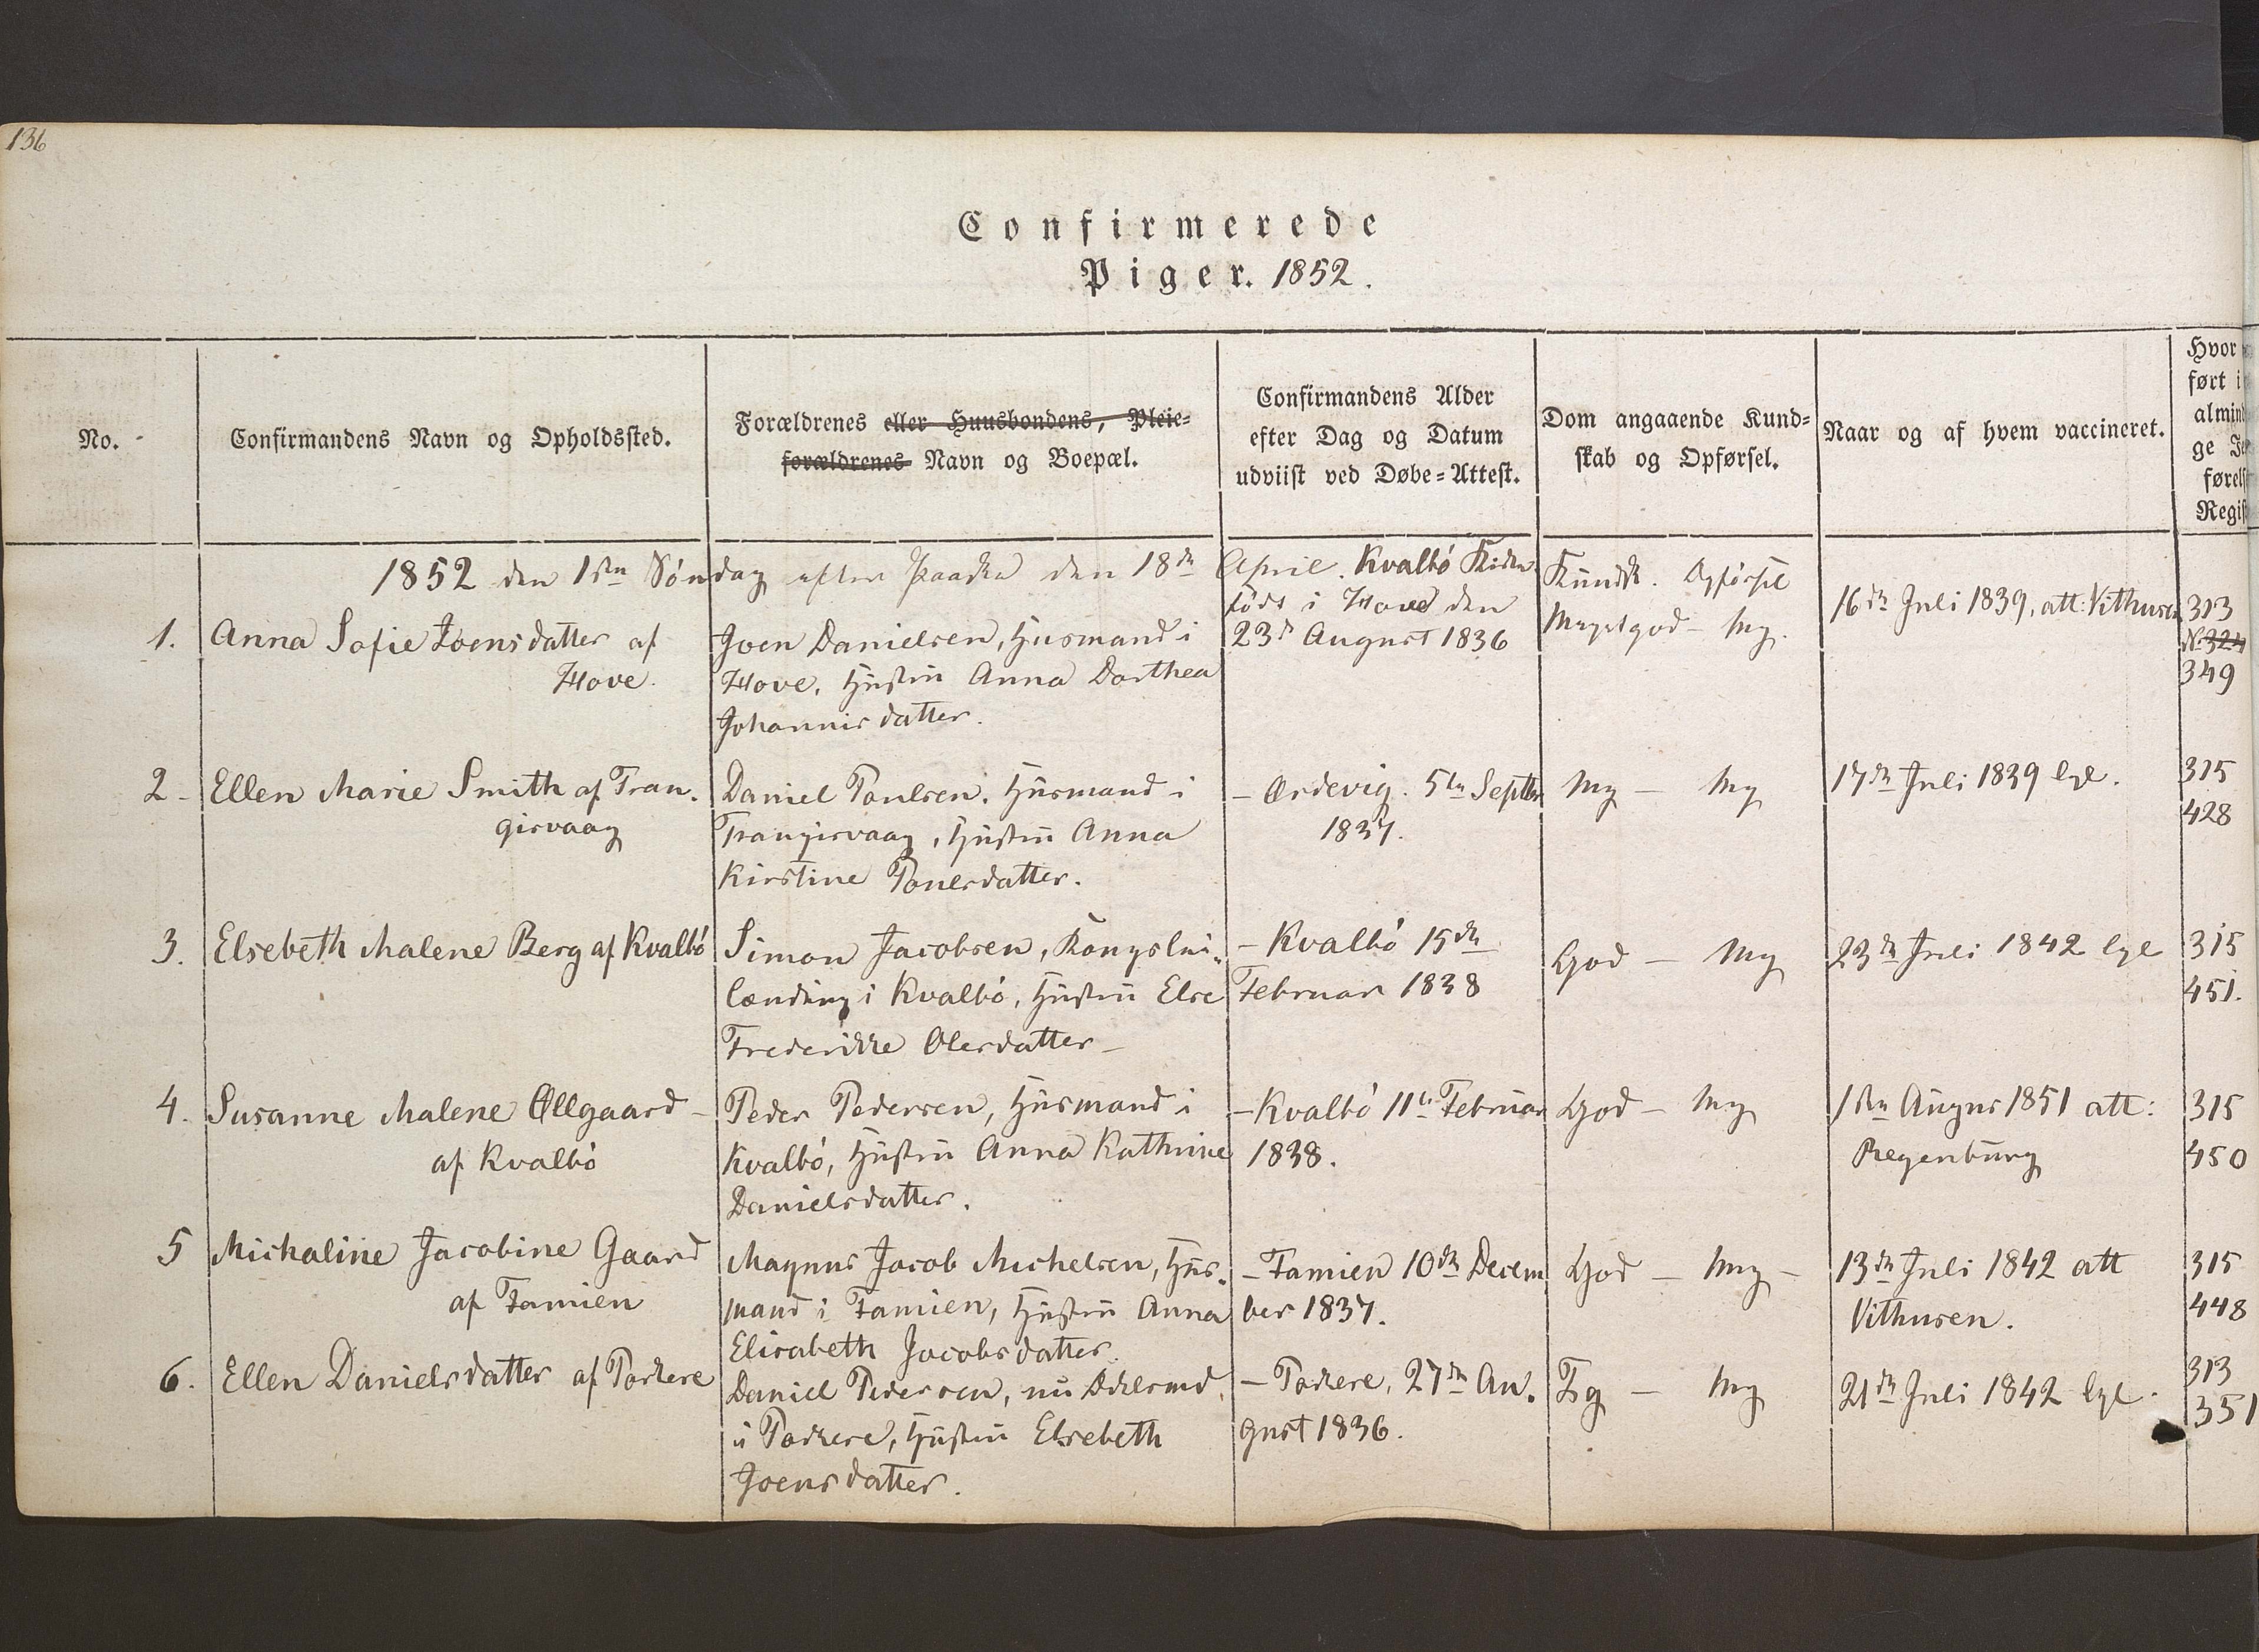 136
Confirmerede
Piger. 1852.
No.
Confirmandens Navn og Opholdssted.
Forældrenes eller Huusbondens, Pleie-
forældrenes Navn og Boepæl.
Confirmandens Alder
efter Dag og Datum
udviist ved Døbe-Attest.
Dom angaaende Kund-
skab og Opførsel.
Naar og af hvem vaccineret.
Hvor
ført i
almind
ge
førels
Regis
1852 den 1ste Søndag efter Paaske den 18de April. Kvalbó Kirke
1.
Anna Sofie Joensdatter af
Hove.
Joen Danielsen, Husmand i
Hove, Hustru Anna Dorthea
Johannisdatter.
født i Hove den
23de August 1836
Kundsk. Opførsel
Megetgod - mg.
16de Juli 1839, att: Vithusen
313
No 324
349
2 -
Ellen Marie Smith af Tran-
gisvaag
Daniel Poulsen, Husmand i
Trangisvaag, Hustru Anna
Kirstine Poulsdatter.
- Ordevig. 5te Septbr
1837.
mg - mg
17de Juli 1839 lgl.
315
428
3.
Elsebeth Malene Berg af Kvalbó
Simon Jacobsen, Kongslei-
lænding i Kvalbó, Hustru Else
Frederikke Olesdatter -
- Kvalbó 15de
Februar 1838
God - mg
23de Juli 1842 lgl
315
451.
4.
Susanne Malene Øllgaard -
af Kvalbó
Peder Pedersen, Husmand i
Kvalbó, Hustru Anna Kathrine
Danielsdatter.
- Kvalbó 11te Februar
1838.
God - mg
1ste Augus 1851 att:
Regenburg
315
450
5
Michaline Jacobine Gaard
af Famien
Magnus Jacob Michelsen, Hus-
mand i Famien, Hustru Anna
Elisabeth Jacobsdatter.
- Famien 10de Decem
ber 1837.
God - mg -
13de Juli 1842 att
Vithusen.
315
448
6.
Ellen Danielsdatter af Porkere
Daniel Pedersen, nu
i Porkere, Hustru Elsebeth
Joensdatter.
- Porkere, 27de Au-
gust 1836.
Tg - mg
21de Juli 1842 lgl.
313
351